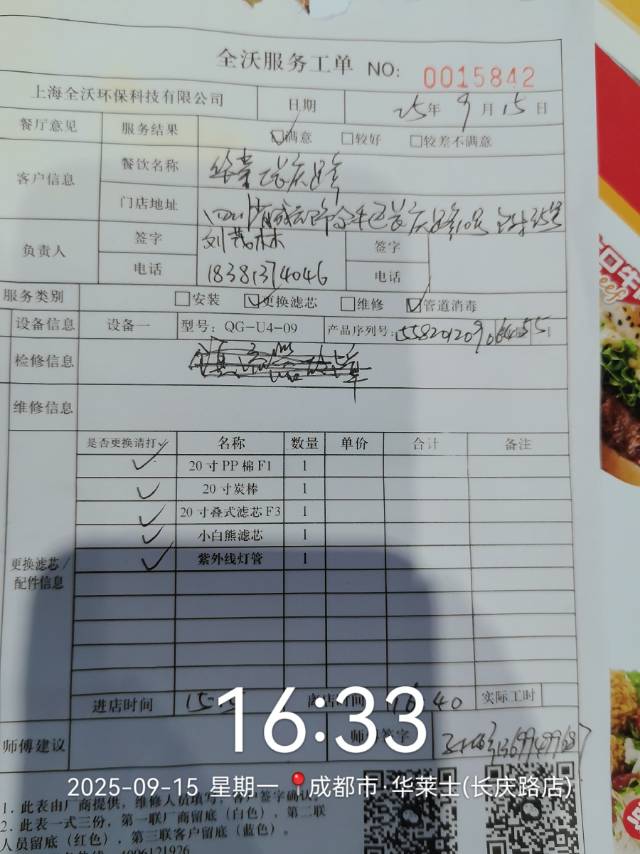 全沃服务工单 NO: 0015842
上海全沃环保科技有限公司 日期 25年9月15日
餐厅意见 服务结果 ☑满意 □较好 □较差不满意
客户信息 餐饮名称 华莱士长庆路
门店地址
负责人 签字 签字
电话 18381374046 电话
服务类别 □安装 ☑更换滤芯 □维修 ☑管道消毒
设备信息 设备一 型号: QG-U4-09 产品序列号:
检修信息
维修信息
是否更换请打✓ 名称 数量 单价 合计 备注
✓ 20寸PP棉F1 1
✓ 20寸炭棒 1
✓ 20寸叠式滤芯F3 1
✓ 小白熊滤芯 1
✓ 紫外线灯管 1
更换滤芯/
配件信息
进店时间 离店时间 16 40 实际工时
师傅建议 签字
16:33
2025-09-15 星期一 📍成都市·华莱士(长庆路店)
1. 此表由厂商提供, 维修人员填写, 客户签字确认。
2. 此表一式三份, 第一联厂商留底(白色), 第二联
人员留底(红色), 第三联客户留底(蓝色)。
4006121926